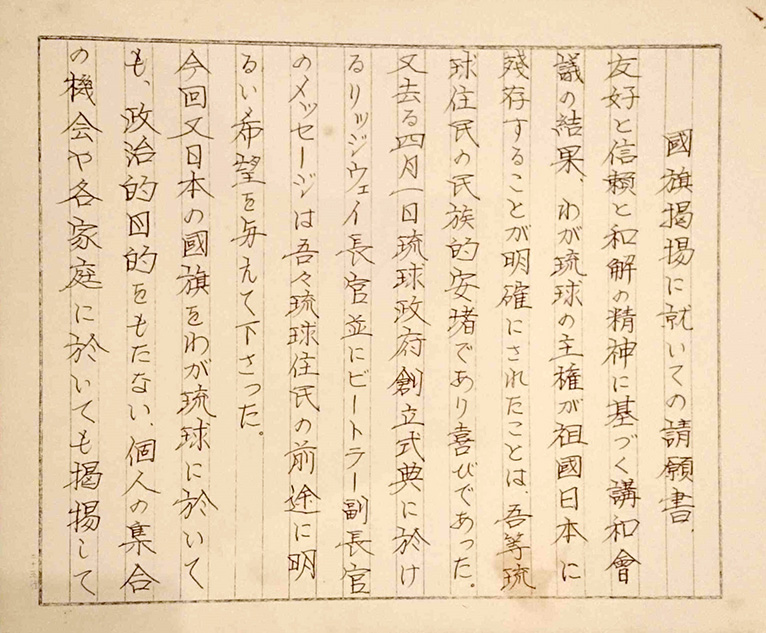 國旗掲揚に就いての請願書、
友好と信頼と和解の精神に基づく講和會
議の結果、わが琉球の主権が祖國日本に
残存することが明確にされたことは、吾等琉
球住民の民族的安堵であり喜びであった。
又去る四月一日琉球政府創立式典に於け
るリッジウェイ長官並にビートラー副長官
のメッセージは吾々琉球住民の前途に明
るい希望を与えて下さった。
今回又日本の國旗をわが琉球に於いて
も、政治的目的をもたない、個人の集合
の機会や各家庭に於いても掲揚して